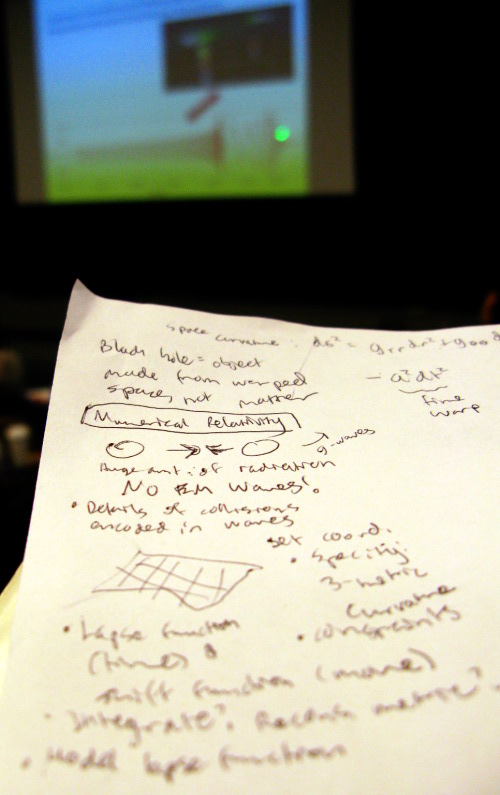 space curvature : ds² = grrdr² + gθθd
Black hole = object
made from warped
space, not matter
- α²dt²
time
warp
Numerical Relativity
g-waves
Huge amt. of radiation
NO EM Waves!
• Details of collisions
encoded in waves
set coord.
• Specify:
3-metric
curvature
• constraints
• Lapse function
(time) &
shift function (move)
• Integrate². Reckon metric
• Model lapse function